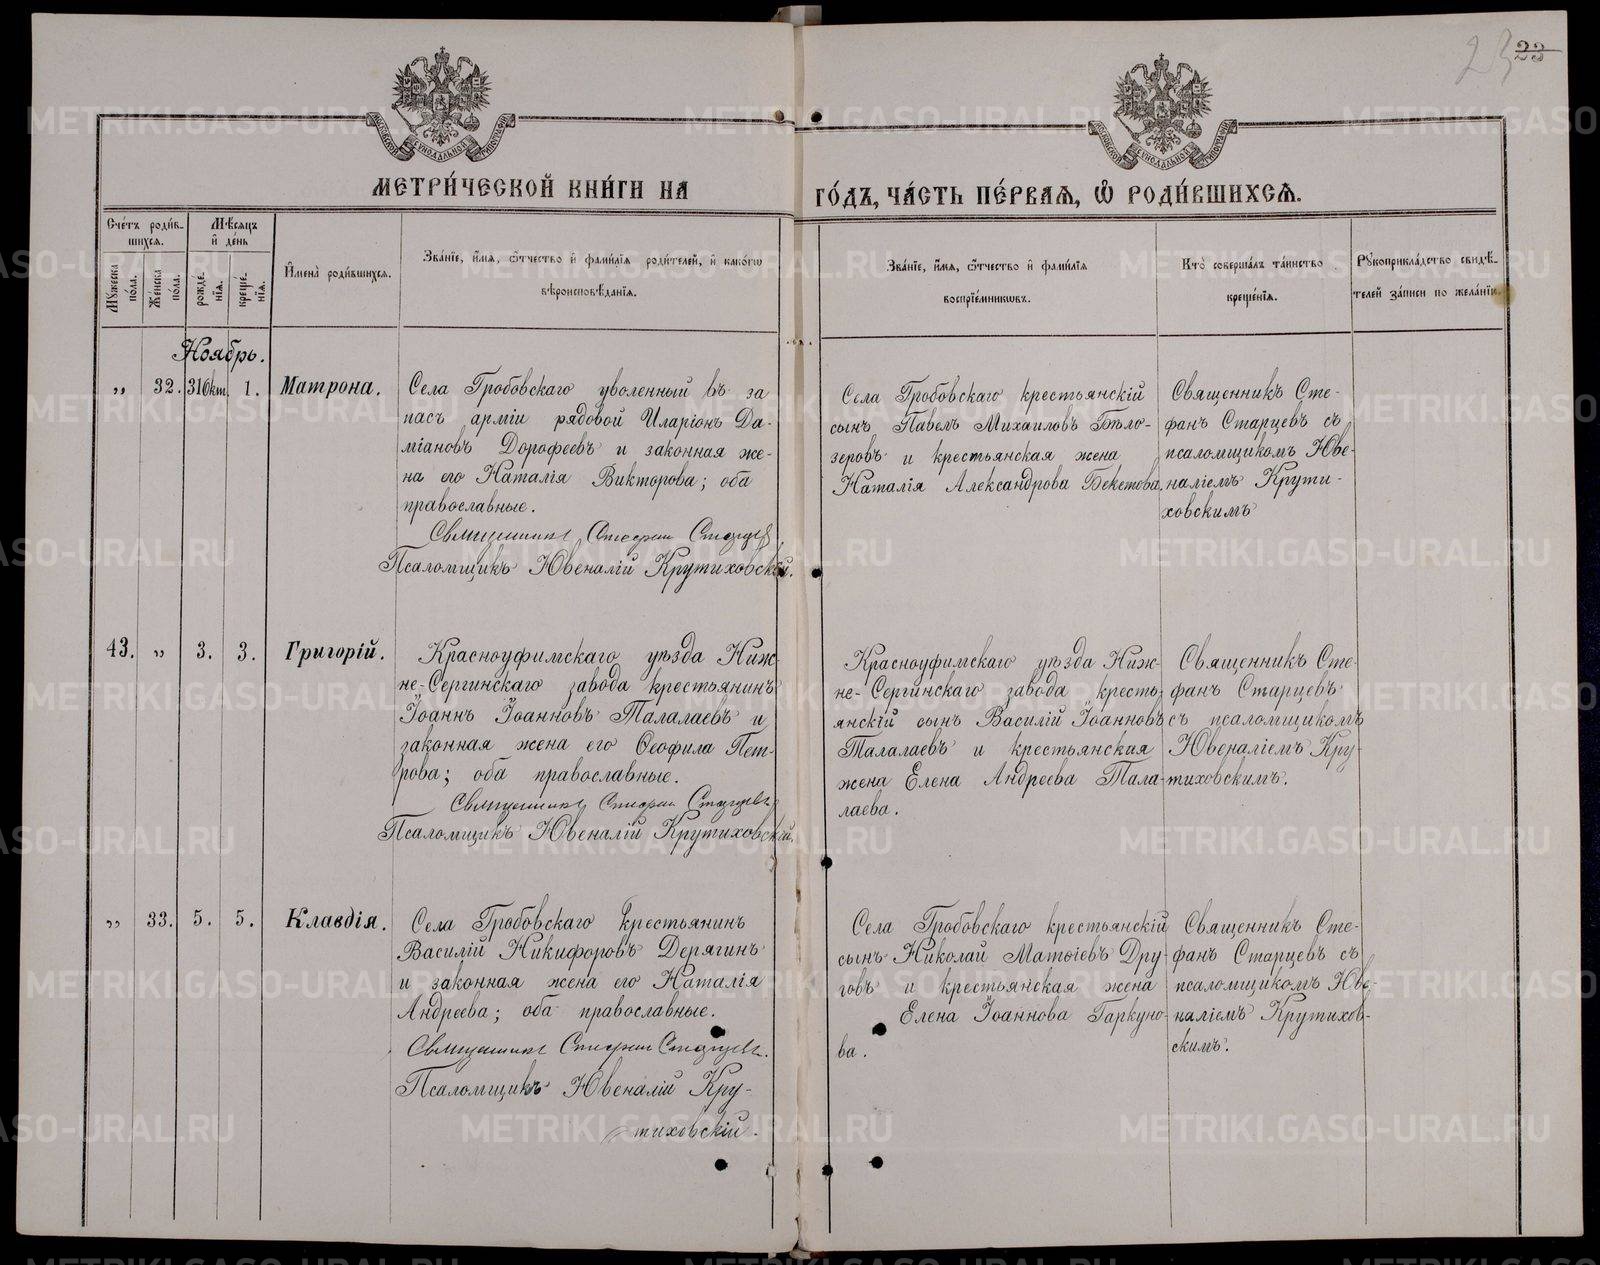 23 23
МЕТРИ́ЧЕСКОЙ КНИ́ГИ НА
ГО́ДЪ, ЧА́СТЬ ПЕ́РВАЯ, Ѡ҆ РОДИ́ВШИХСЯ.
Сче́тъ роди́в-
шихся.
Мѣ́сяцъ
и҆ де́нь
Мꙋжеска по́ла.
Же́нска по́ла.
рожде́нїя.
креще́нїя.
И҆мена̀ роди́вшихся.
Зва́нїе, и҆́мя, ѻ҆́тчество и҆ фами́лїя роди́телей, и҆ како́гѡ
вѣроисповѣ́данїя.
Зва́нїе, и҆́мя, ѻ҆́тчество и҆ фами́лїя
воспрїе́мникѡвъ.
Кто̀ соверша́лъ та́инство
креще́нїя.
Рꙋкоприкла́дство свидѣ́-
телей за́писи по жела́нїю.
Ноябрь.
„ 32. 31 Окт. 1. Матрона.
Села Гробовскаго уволенный въ за
пасъ арміи рядовой Иларіонъ Да-
міановъ Дорофеевъ и законная же-
на его Наталія Викторова; оба
православные.
Священникъ Стефан Старцевъ
Псаломщикъ Ювеналій Крутиховскій.
Села Гробовскаго крестьянскій
сынъ Павелъ Михаиловъ Бѣло-
зеровъ и крестьянская жена
Наталія Александрова Бекетова.
Священникъ Сте-
фанъ Старцевъ съ
псаломщикомъ Юве-
наліемъ Крути-
ховскимъ
43. „ 3. 3. Григорій.
Красноуфимскаго уѣзда Ниж-
не-Сергинскаго завода крестьянинъ
Іоаннъ Іоанновъ Талалаевъ и
законная жена его Ѳеофила Пет-
рова; оба православные.
Священникъ Стефан Старцевъ
Псаломщикъ Ювеналій Крутиховскій.
Красноуфимскаго уѣзда Ниж-
не-Сергинскаго завода кресть-
янскій сынъ Василій Іоанновъ
Талалаевъ и крестьянская
жена Елена Андреева Тала-
лаева.
Священникъ Сте-
фанъ Старцевъ
съ псаломщикомъ
Ювеналіемъ Кру-
тиховскимъ.
„ 33. 5. 5. Клавдія.
Села Гробовскаго крестьянинъ
Василій Никифоровъ Дерягинъ
и законная жена его Наталія
Андреева; оба православные.
Священникъ Стефан Старцевъ.
Псаломщикъ Ювеналій Кру-
тиховскій.
Села Гробовскаго крестьянскій
сынъ Николай Матѳіевъ Дру-
говъ и крестьянская жена
Елена Іоаннова Гаркуно-
ва.
Священникъ Сте-
фанъ Старцевъ съ
псаломщикомъ Юве-
наліемъ Крутихов-
скимъ.